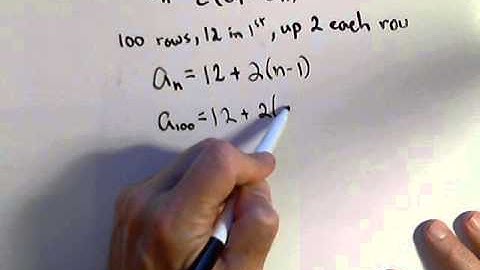 100 rows, 12 in 1st, up 2 each row
aₙ = 12 + 2(n-1)
a₁₀₀ = 12 + 2(